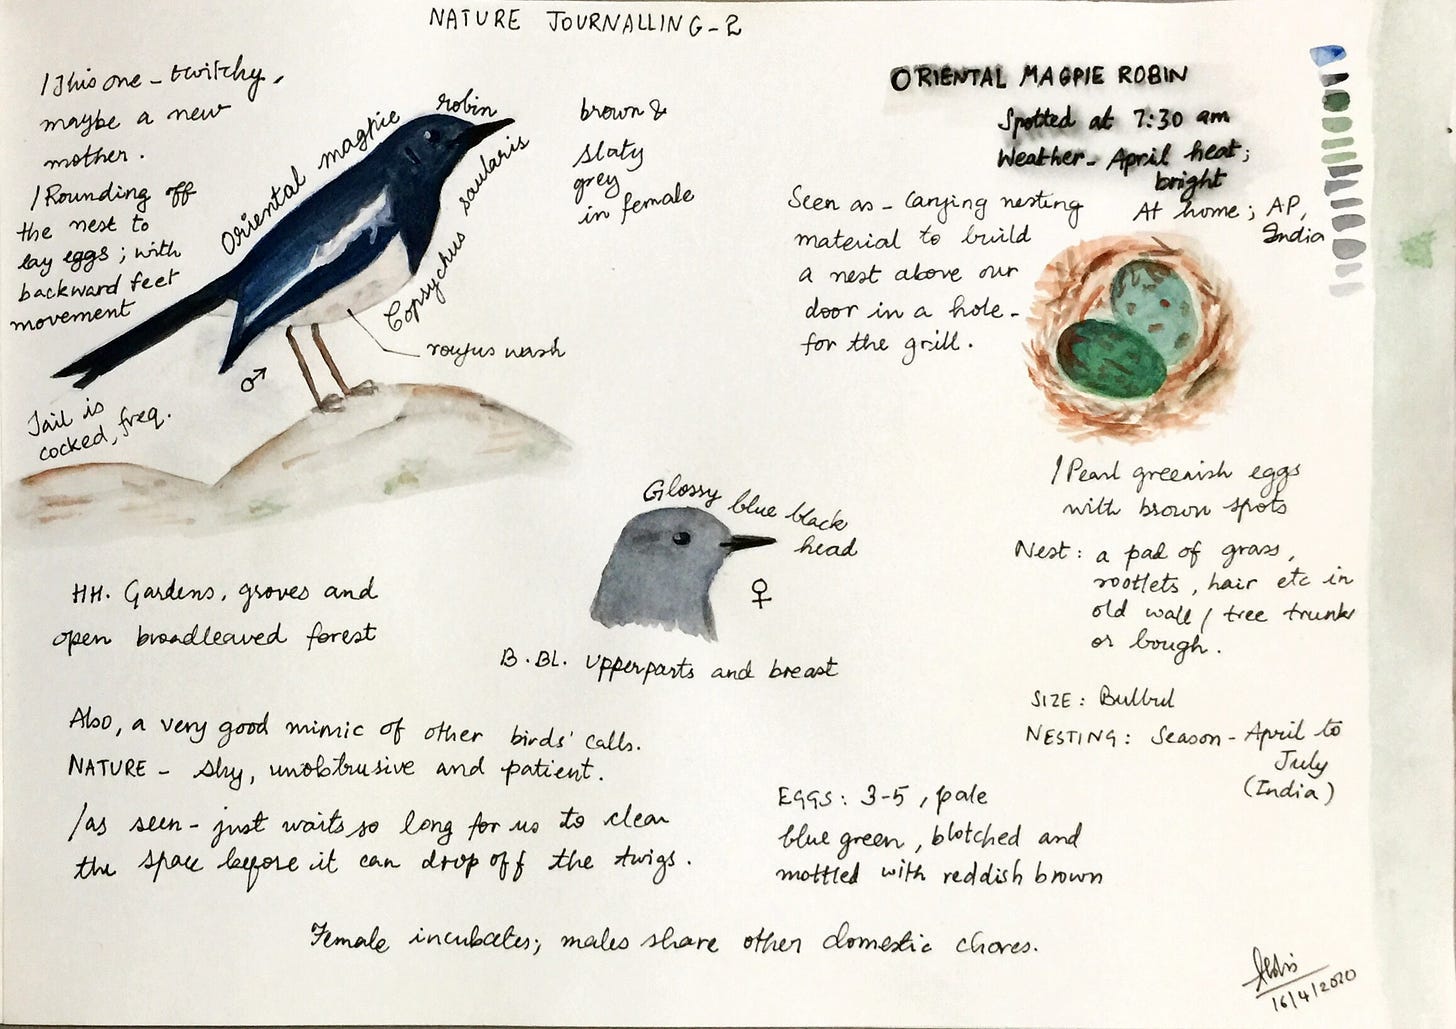 NATURE JOURNALLING-2
/This one - twitchy,
maybe a new
mother.
/Rounding off
the nest to
lay eggs; with
backward feet
movement
Oriental magpie robin
Copsychus saularis
brown &
slaty
grey
in female
roufus wash
♂
Tail is
cocked, freq.
ORIENTAL MAGPIE ROBIN
Spotted at 7:30 am
Weather - April heat;
bright
At home; AP,
India
Seen as - Carrying nesting
material to build
a nest above our
door in a hole -
for the grill.
/Pearl greenish eggs
with brown spots
Nest: a pad of grass,
rootlets, hair etc in
old wall / tree trunk
or bough.
SIZE: Bulbul
NESTING: Season - April to
July
(India)
Glossy blue black
head
♀
B.BL. upperparts and breast
HH. Gardens, groves and
open broadleaved forest
Also, a very good mimic of other birds' calls.
NATURE - shy, unobtrusive and patient.
/as seen - just waits so long for us to clear
the space before it can drop off the twigs.
EGGS: 3-5, pale
blue green, blotched and
mottled with reddish brown
Female incubates; males share other domestic chores.
16/4/2020